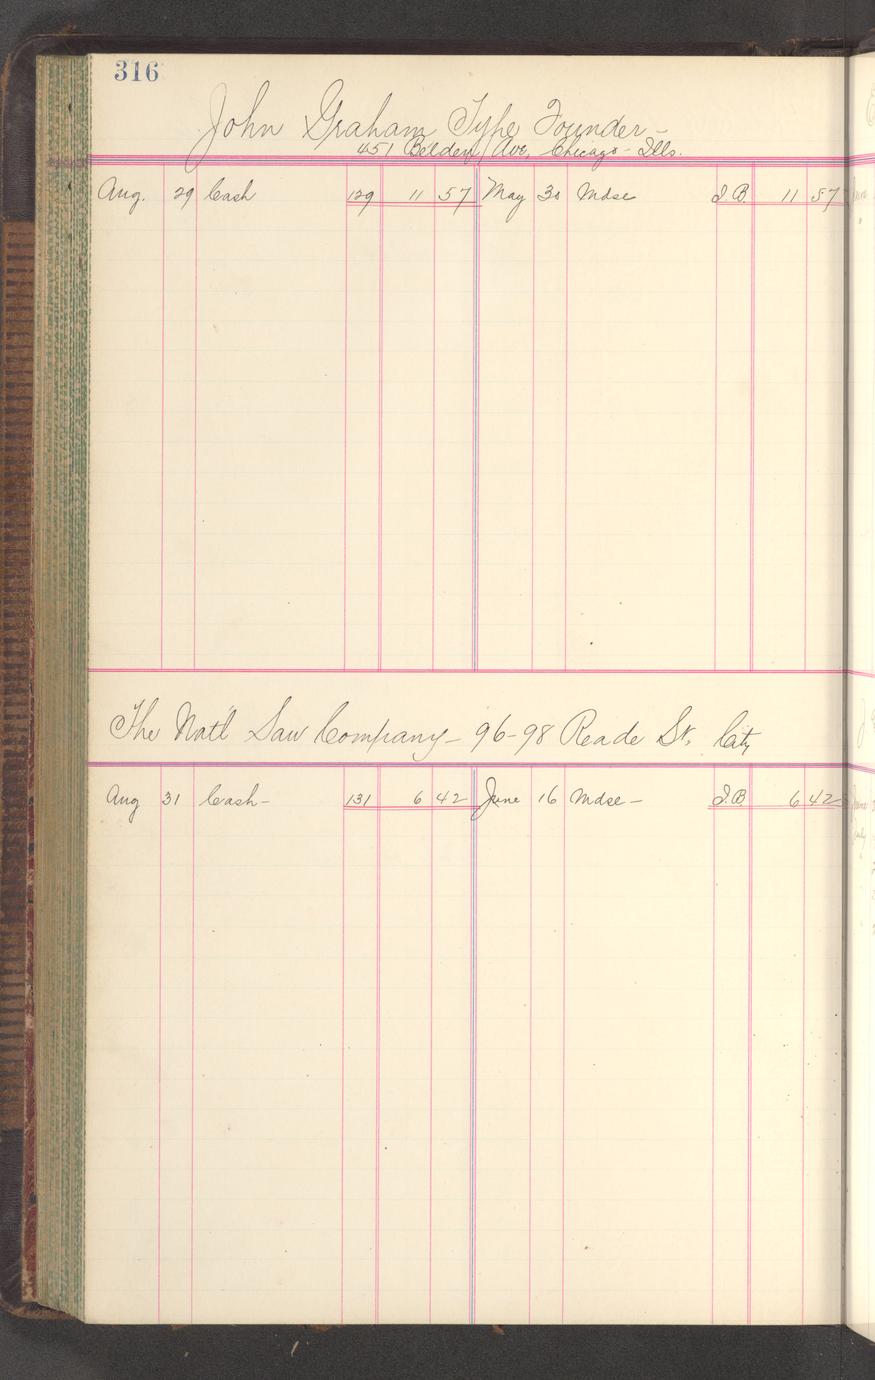 316
John Graham Type Founder -
451 Belden Ave, Chicago - Ills.
Aug. 29 Cash 129 11 57 May 30 Mdse I.B. 11 57
The Nat'l Saw Company - 96-98 Reade St, City
Aug 31 Cash - 131 6 42 June 16 Mdse - I.B. 6 42